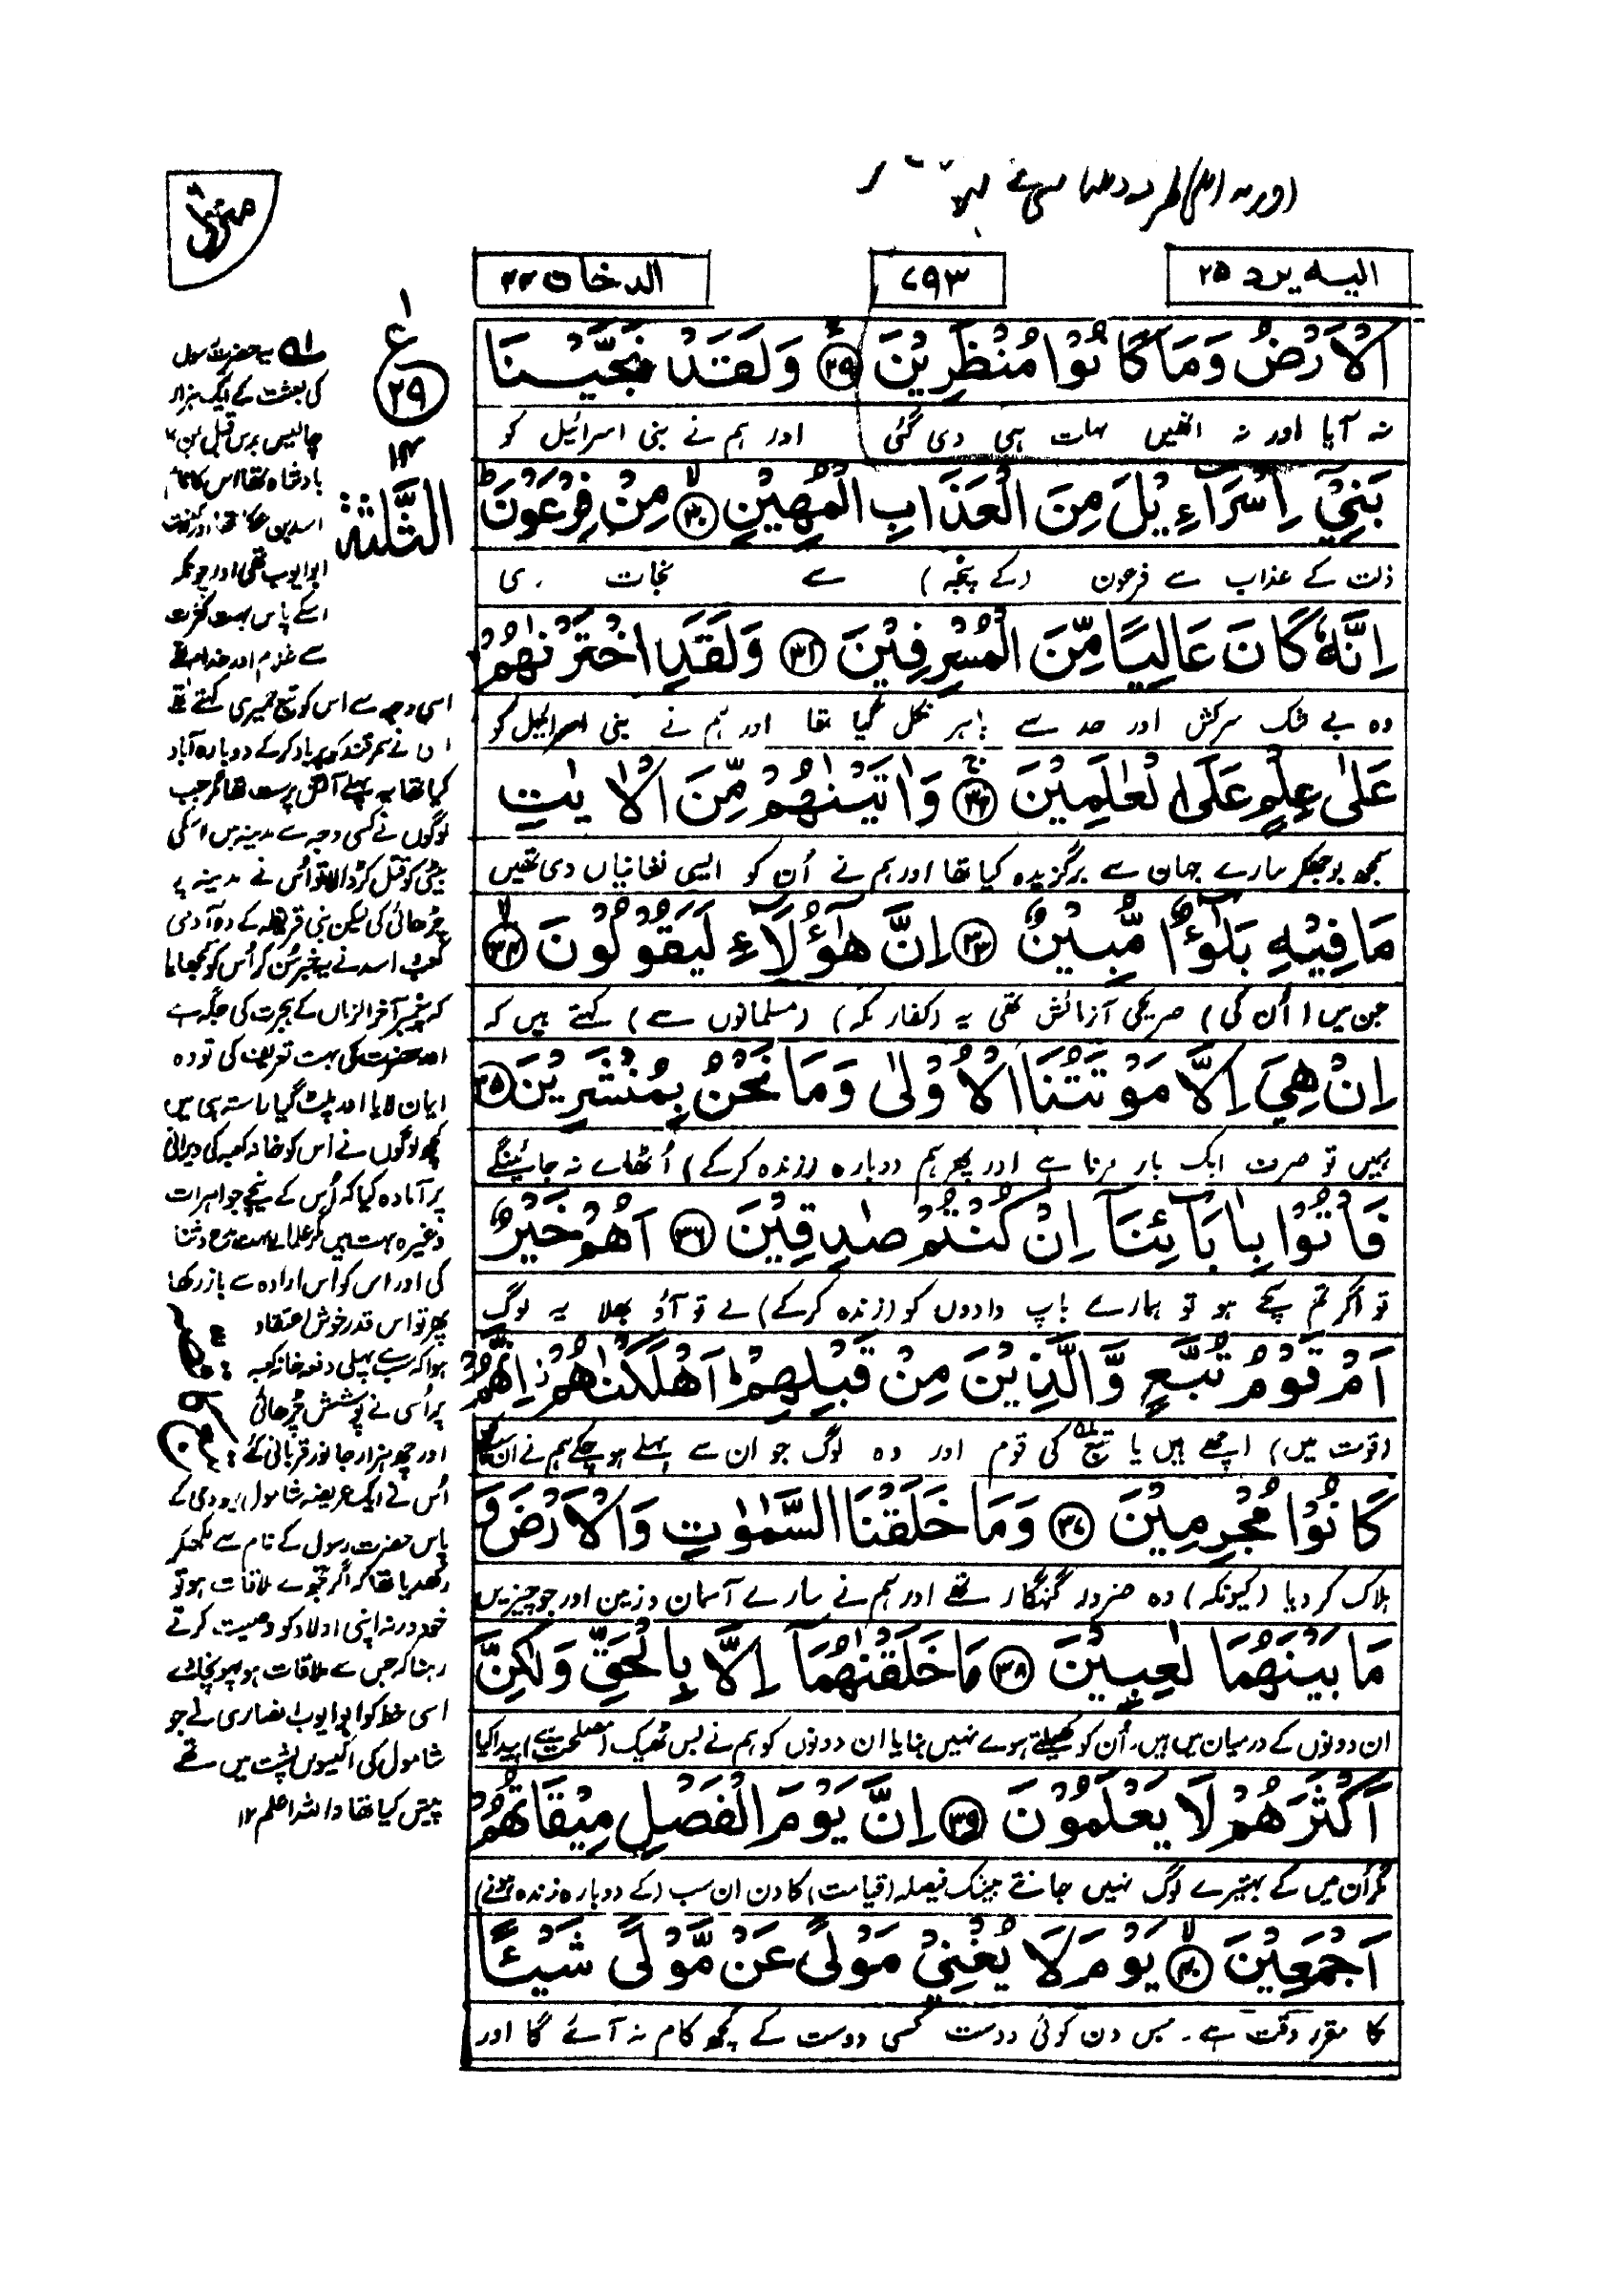 الیہ یرد ۲۵
۷۹۳
الدخان ۴۴
منزل
الْاَرْضُ وَمَا كَانُوْا مُنْظَرِيْنَ ﴿۲۹﴾ وَلَقَدْ نَجَّيْنَا
نہ آیا اور نہ انھیں مہلت ہی دی گئی اور ہم نے بنی اسرائیل کو
بَنِيْٓ اِسْرَآءِيْلَ مِنَ الْعَذَابِ الْمُهِيْنِ ﴿۳۰﴾ مِنْ فِرْعَوْنَ
ذلت کے عذاب سے فرعون (کے پنجہ) سے نجات دی
اِنَّهٗ كَانَ عَالِيًا مِّنَ الْمُسْرِفِيْنَ ﴿۳۱﴾ وَلَقَدِ اخْتَرْنٰهُمْ
وہ بے شک سرکش اور حد سے باہر نکل گیا تھا اور ہم نے بنی اسرائیل کو
عَلٰى عِلْمٍ عَلَى الْعٰلَمِيْنَ ﴿۳۲﴾ وَاٰتَيْنٰهُمْ مِّنَ الْاٰيٰتِ
سمجھ بوجھکر سارے جہان سے برگزیدہ کیا تھا اور ہم نے اُن کو ایسی نشانیاں دی تھیں
مَا فِيْهِ بَلٰٓؤٌا مُّبِيْنٌ ﴿۳۳﴾ اِنَّ هٰٓؤُلَآءِ لَيَقُوْلُوْنَ ﴿۳۴﴾
جن میں (اُن کی) صریحی آزمائش تھی یہ (کفار مکہ) (مسلمانوں سے) کہتے ہیں کہ
اِنْ هِيَ اِلَّا مَوْتَتُنَا الْاُوْلٰى وَمَا نَحْنُ بِمُنْشَرِيْنَ ﴿۳۵﴾
ہمیں تو صرف ایک بار مرنا ہے اور پھر ہم دوبارہ (زندہ کرکے) اُٹھائے نہ جائینگے
فَاْتُوْا بِاٰبَآئِنَآ اِنْ كُنْتُمْ صٰدِقِيْنَ ﴿۳۶﴾ اَهُمْ خَيْرٌ
تو اگر تم سچے ہو تو ہمارے باپ دادوں کو (زندہ کرکے) لے تو آؤ بھلا یہ لوگ
اَمْ قَوْمُ تُبَّعٍ وَّالَّذِيْنَ مِنْ قَبْلِهِمْ اَهْلَكْنٰهُمْ اِنَّهُمْ
(قوت میں) اچھے ہیں یا تبع کی قوم اور وہ لوگ جو ان سے پہلے ہو چکے ہم نے ان سب کو
كَانُوْا مُجْرِمِيْنَ ﴿۳۷﴾ وَمَا خَلَقْنَا السَّمٰوٰتِ وَالْاَرْضَ وَ
ہلاک کر دیا (کیونکہ) وہ ضرور گنہگار تھے اور ہم نے سارے آسمان و زمین اور جو چیزیں
مَا بَيْنَهُمَا لٰعِبِيْنَ ﴿۳۸﴾ مَا خَلَقْنٰهُمَآ اِلَّا بِالْحَقِّ وَلٰكِنَّ
ان دونوں کے درمیان میں ہیں، اُن کو کھیلتے ہوے نہیں بنایا ان دونوں کو ہم نے بس ٹھیک (مصلحت سے) پیدا کیا
اَكْثَرَهُمْ لَا يَعْلَمُوْنَ ﴿۳۹﴾ اِنَّ يَوْمَ الْفَصْلِ مِيْقَاتُهُمْ
مگر اُن میں کے بہتیرے لوگ نہیں جانتے بیشک فیصلہ (قیامت) کا دن ان سب (کے دوبارہ زندہ ہونے)
اَجْمَعِيْنَ ﴿۴۰﴾ يَوْمَ لَا يُغْنِيْ مَوْلًى عَنْ مَّوْلًى شَيْـًٔا
کا مقرر وقت ہے۔ جس دن کوئی دوست کسی دوست کے کچھ کام نہ آئے گا اور
۱
ع
۲۹
۱۴
الثلثۃ
۱ہ یہ حضرت رسول
کی بعثت کے ایک ہزار
چالیس برس قبل یمن کا
بادشاہ تھا اس کا نام
ابو ایوب تھی اور چونکہ
اسکے پاس بہت کثرت
سے
اسی وجہ سے اس کو تبع حمیری کہتے تھے
نے سمرقند کو برباد کرکے دوبارہ آباد
کیا تھا یہ پہلے آتش پرست تھا مگر جب
لوگوں نے کسی وجہ سے مدینہ میں اسکی
بیٹی کو قتل کر ڈالا تو اُس نے مدینہ پر
چڑھائی کی لیکن بنی قریظہ کے دو آدمی
کعب اسد نے یہ خبر سُن کر اُس کو سمجھایا
کہ پیغمبر آخر الزماں کے ہجرت کی جگہ ہے
اور حضرت کی بہت تعریف کی تو وہ
ایمان لایا اور پلٹ گیا راستہ ہی میں
کچھ لوگوں نے اس کو خانہ کعبہ کی ویرانی
پر آمادہ کیا کہ اُس کے نیچے جواہرات
وغیرہ بہت ہیں مگر علما نے بہت مدح و ثنا
کی اور اس کو اس ارادہ سے باز رکھا
پھر تو اس قدر خوش اعتقاد
ہوا کہ سب سے پہلی دفعہ خانہ کعبہ
پر اُسی نے پوشش چڑھائی
اور چھ ہزار جانور قربانی کئے
اُس نے ایک عریضہ شامول یہودی کے
پاس حضرت رسول کے نام سے لکھکر
رکھدیا تھا کہ اگر تجھ سے ملاقات ہو تو
خود ورنہ اپنی اولاد کو وصیت کرتے
رہنا کہ جس سے ملاقات ہو پہونچا دے
اسی خط کو ابو ایوب انصاری نے جو
شامول کی اکیسویں پشت میں تھے
پیش کیا تھا واللہ اعلم ۱۲